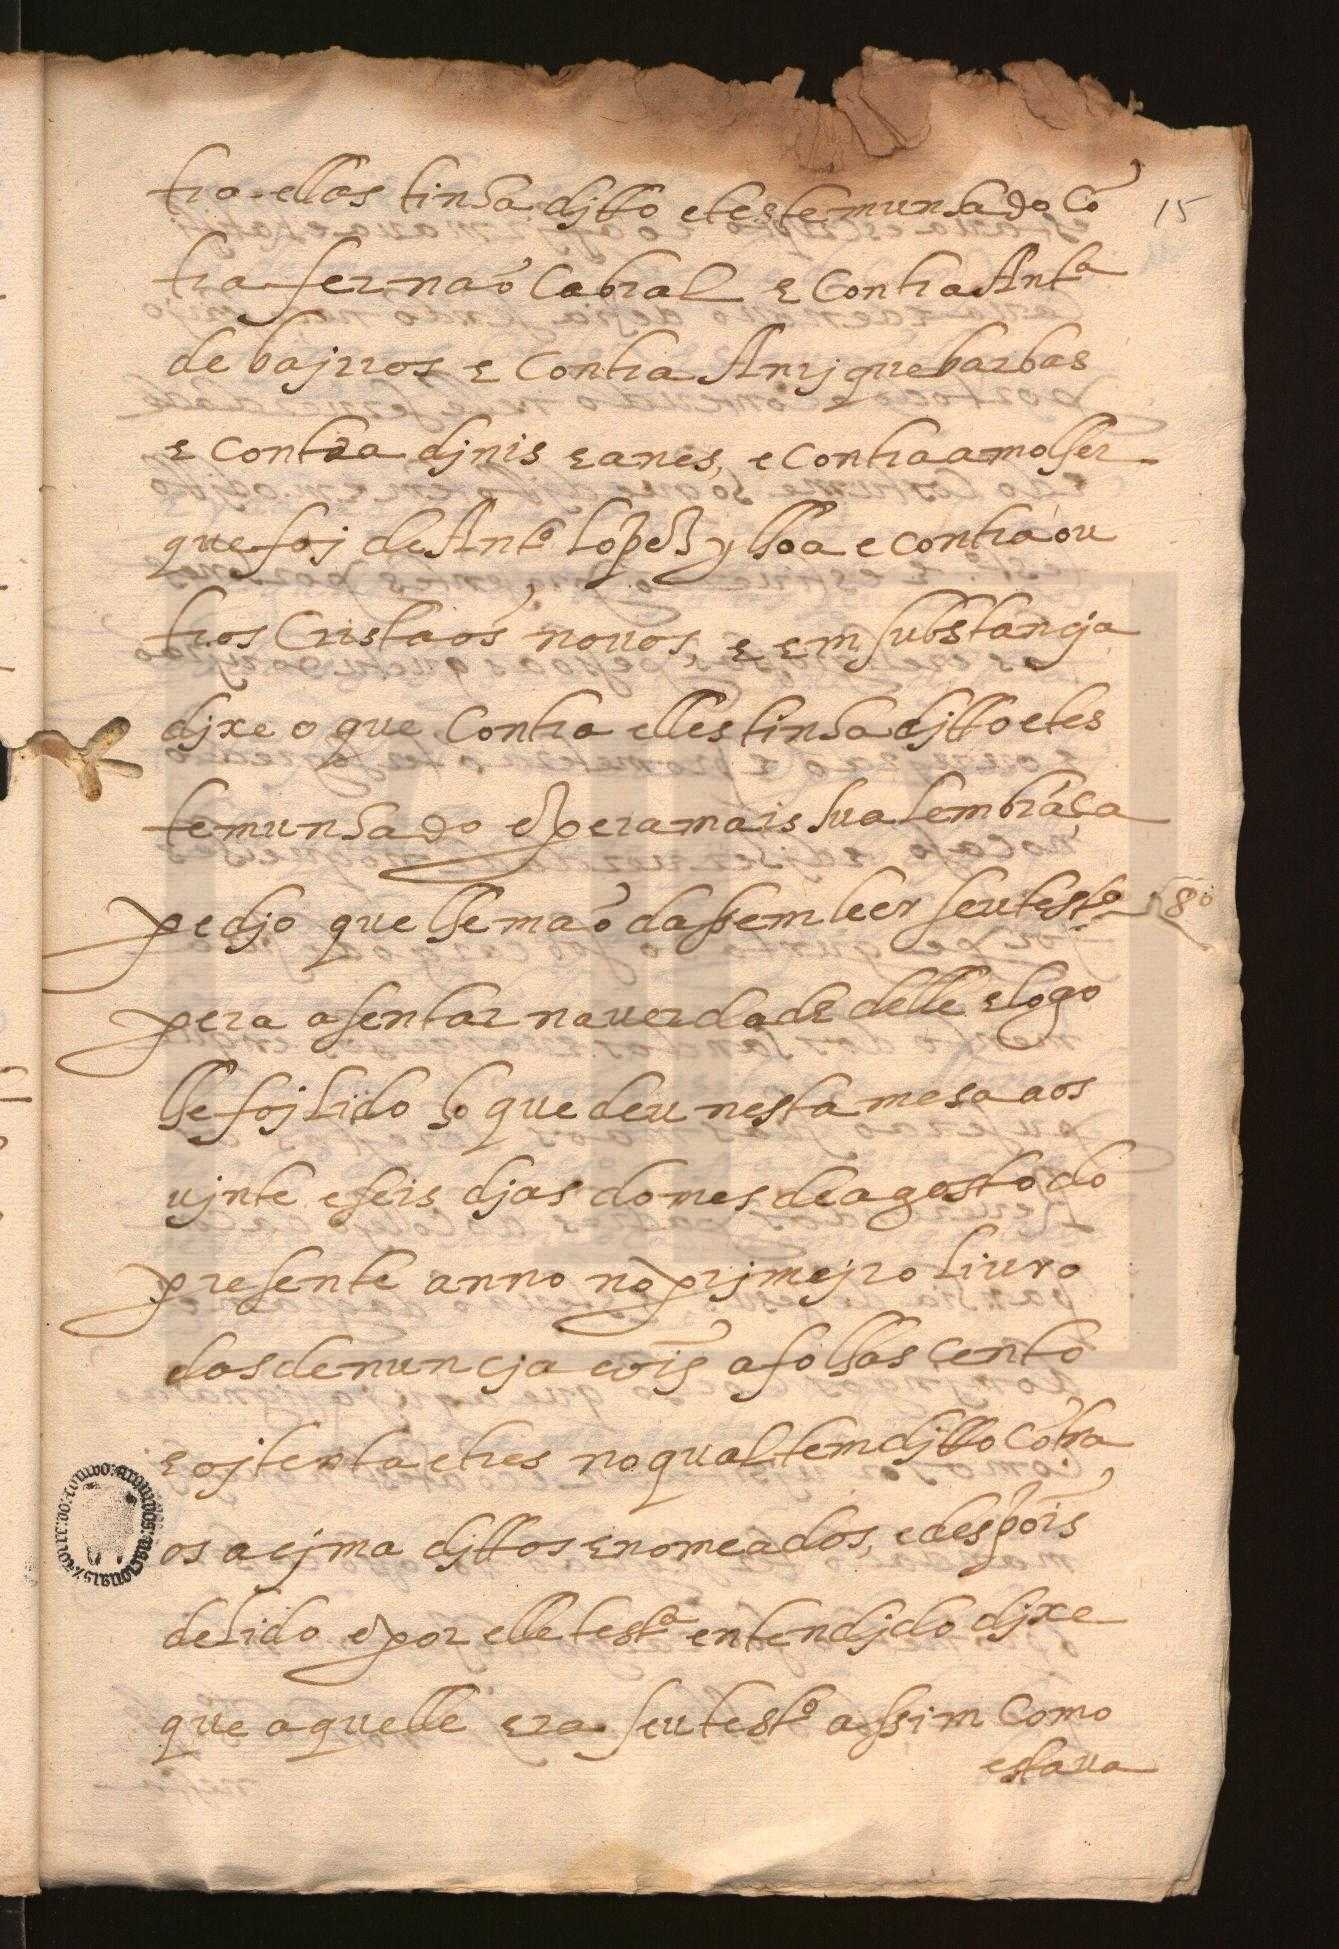 tra ellas tinha djtto e testemunhado Cõ 15
tra fernaõ Cabral e Contra Antª
de bajrros e Contra Anrjque barbas
e Contra djnis eanes, e Contra a molher
que foj de Antº Lopes ylhoa e contra ou
tros Cristaõs novos, e em substancja
djxe o que Contra elles tinha djtto e tes
temunhado e pera mais sua lembrãça
pedjo que lhe mãodassem leer seu testº 8º
pera asentar na verdade delle e logo
lhe foj Lido ho que deu nesta mesa aos
vjnte e seis djas do mes de agosto do
presente anno no prjmejro Livro
das denuncjações a folhas cento
e ojtenta e tres no qual tem djtto Cõtra
os acjma djttos e nomeados, e despois
de Lido e por elle testª entendjdo djxe
que aquelle era seu testº assim como
estava